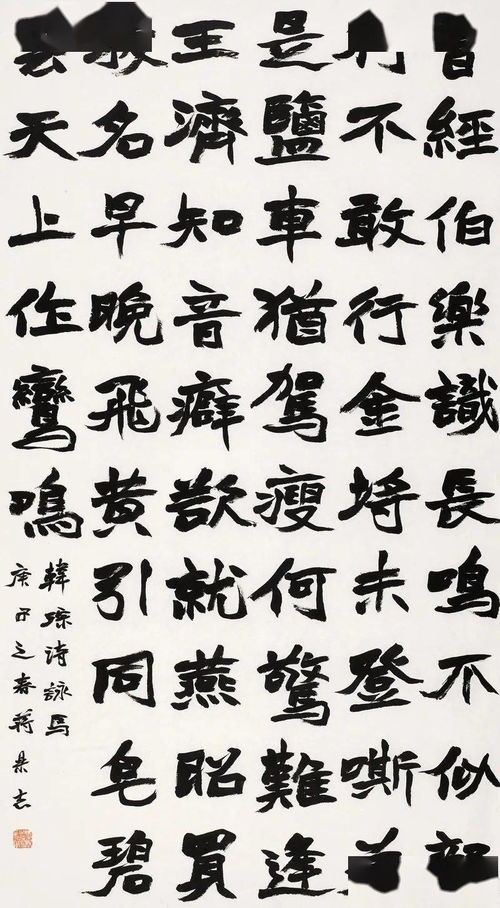 經伯樂識長鳴不似
不敢行金埒未登嘶
是鹽車猶駕瘦何驚難逢
王濟知音癖欲就燕昭買
名早晚飛黄引同皂碧
天上作鸞鳴
韓琮詩詠馬
庚子之春蔣志